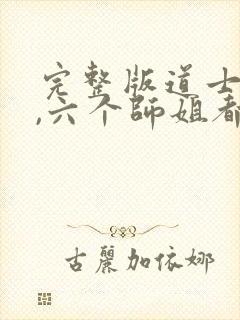 完整版道士
,六个師姐看
古麗加依娜